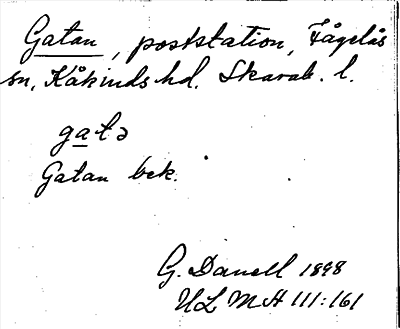 Gatan, poststation, Fågelås
sn, Kåkinds hd. Skarab. l.
gatə
Gatan bek.
G. Danell 1898
ULMA 111:161